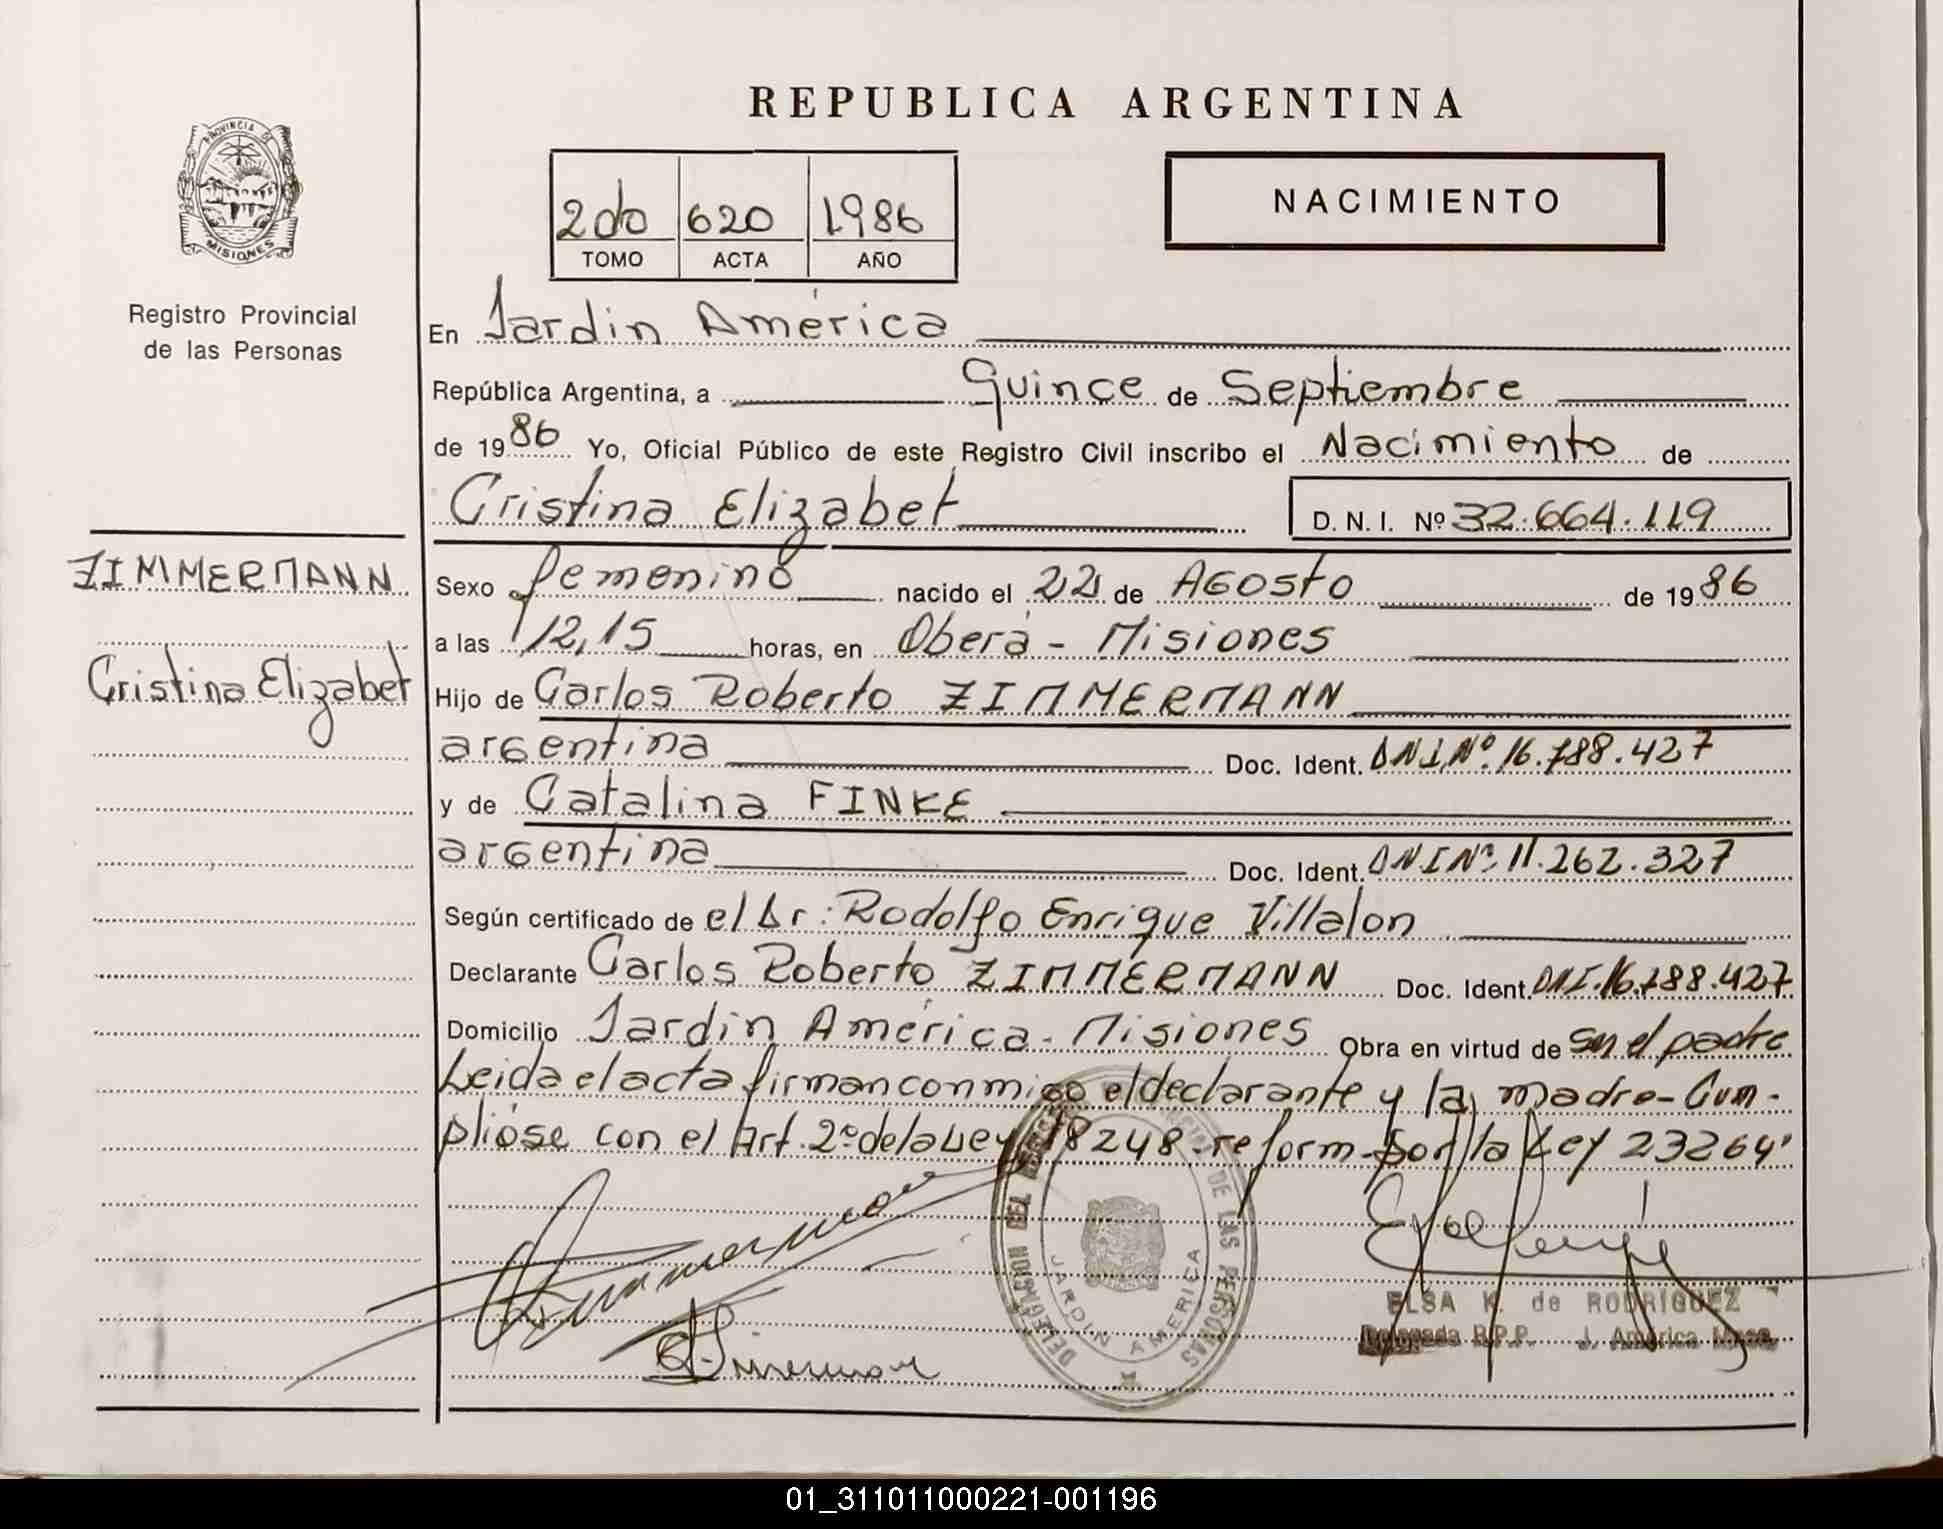 PROVINCIA DE
MISIONES
Registro Provincial
de las Personas
ZIMMERMANN
Cristina Elizabet
REPUBLICA ARGENTINA
2do 620 1986
TOMO ACTA AÑO
NACIMIENTO
En Jardin América
República Argentina, a Quince de Septiembre
de 1986 Yo, Oficial Público de este Registro Civil inscribo el Nacimiento de
Cristina Elizabet D.N.I. Nº 32.664.119
Sexo femenino nacido el 22 de Agosto de 1986
a las 12,15 horas, en Oberá - Misiones
Hijo de Carlos Roberto ZIMMERMANN
argentina Doc. Ident. DNI Nº 16.788.427
y de Catalina FINKE
argentina Doc. Ident. DNI Nº 11.262.327
Según certificado de el Dr: Rodolfo Enrique Villalon
Declarante Carlos Roberto ZIMMERMANN Doc. Ident. DNI.16.788.427
Domicilio Jardin América - Misiones Obra en virtud de ser el padre
Leida el acta firman conmigo el declarante y la madre - Cum-
plióse con el Art. 2º de la Ley 18248 reform. por la Ley 23264
DELEGACION DEL REGISTRO PROVINCIAL DE LAS PERSONAS
JARDIN AMERICA
ELSA K. de RODRIGUEZ
Delegada R.P.P. J. América Mnes.
01_311011000221-001196